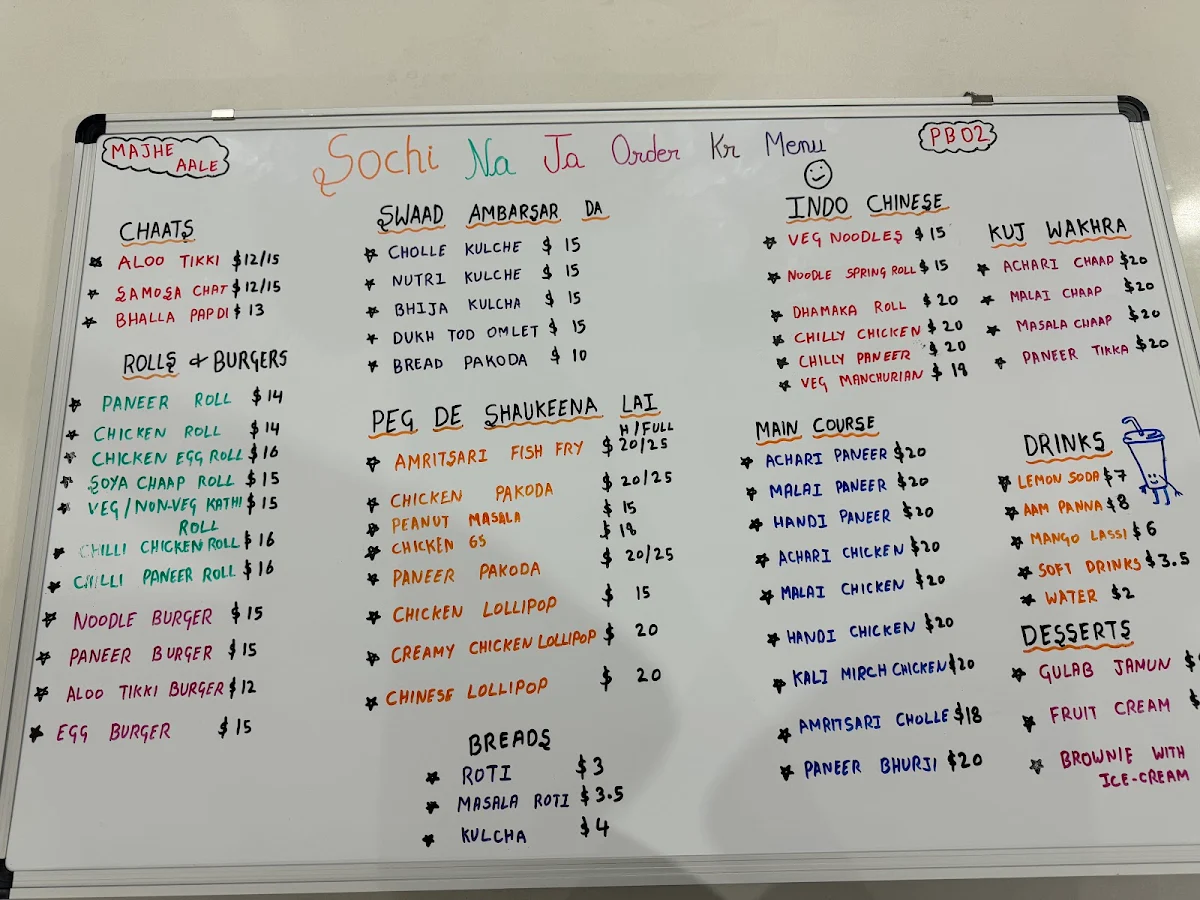 MAJHE
AALE
Sochi Na Ja Order Kr Menu
PB02
CHAATS
ALOO TIKKI $12/15
SAMOSA CHAT $12/15
BHALLA PAPDI $ 13
ROLLS & BURGERS
PANEER ROLL $14
CHICKEN ROLL $14
CHICKEN EGG ROLL $16
SOYA CHAAP ROLL $15
VEG/NON-VEG KATHI $15
ROLL
CHILLI CHICKEN ROLL $16
CHILLI PANEER ROLL $16
NOODLE BURGER $15
PANEER BURGER $15
ALOO TIKKI BURGER $12
EGG BURGER $15
SWAAD AMBARSAR DA
CHOLLE KULCHE $ 15
NUTRI KULCHE $ 15
BHIJA KULCHA $ 15
DUKH TOD OMLET $ 15
BREAD PAKODA $ 10
PEG DE SHAUKEENA LAI
H/FULL
AMRITSARI FISH FRY $ 20/25
CHICKEN PAKODA $ 20/25
PEANUT MASALA $ 15
CHICKEN 65 $ 18
PANEER PAKODA $ 20/25
CHICKEN LOLLIPOP $ 15
CREAMY CHICKEN LOLLIPOP $ 20
CHINESE LOLLIPOP $ 20
BREADS
ROTI $3
MASALA ROTI $3.5
KULCHA $4
INDO CHINESE
VEG NOODLES $15
NOODLE SPRING ROLL $15
DHAMAKA ROLL $20
CHILLY CHICKEN $20
CHILLY PANEER $20
VEG MANCHURIAN $ 18
KUJ WAKHRA
ACHARI CHAAP $20
MALAI CHAAP $20
MASALA CHAAP $20
PANEER TIKKA $20
MAIN COURSE
ACHARI PANEER $20
MALAI PANEER $20
HANDI PANEER $20
ACHARI CHICKEN $20
MALAI CHICKEN $20
HANDI CHICKEN $20
KALI MIRCH CHICKEN $20
AMRITSARI CHOLLE $18
PANEER BHURJI $20
DRINKS
LEMON SODA $7
AAM PANNA $8
MANGO LASSI $6
SOFT DRINKS $3.5
WATER $2
DESSERTS
GULAB JAMUN $
FRUIT CREAM $
BROWNIE WITH
ICE-CREAM